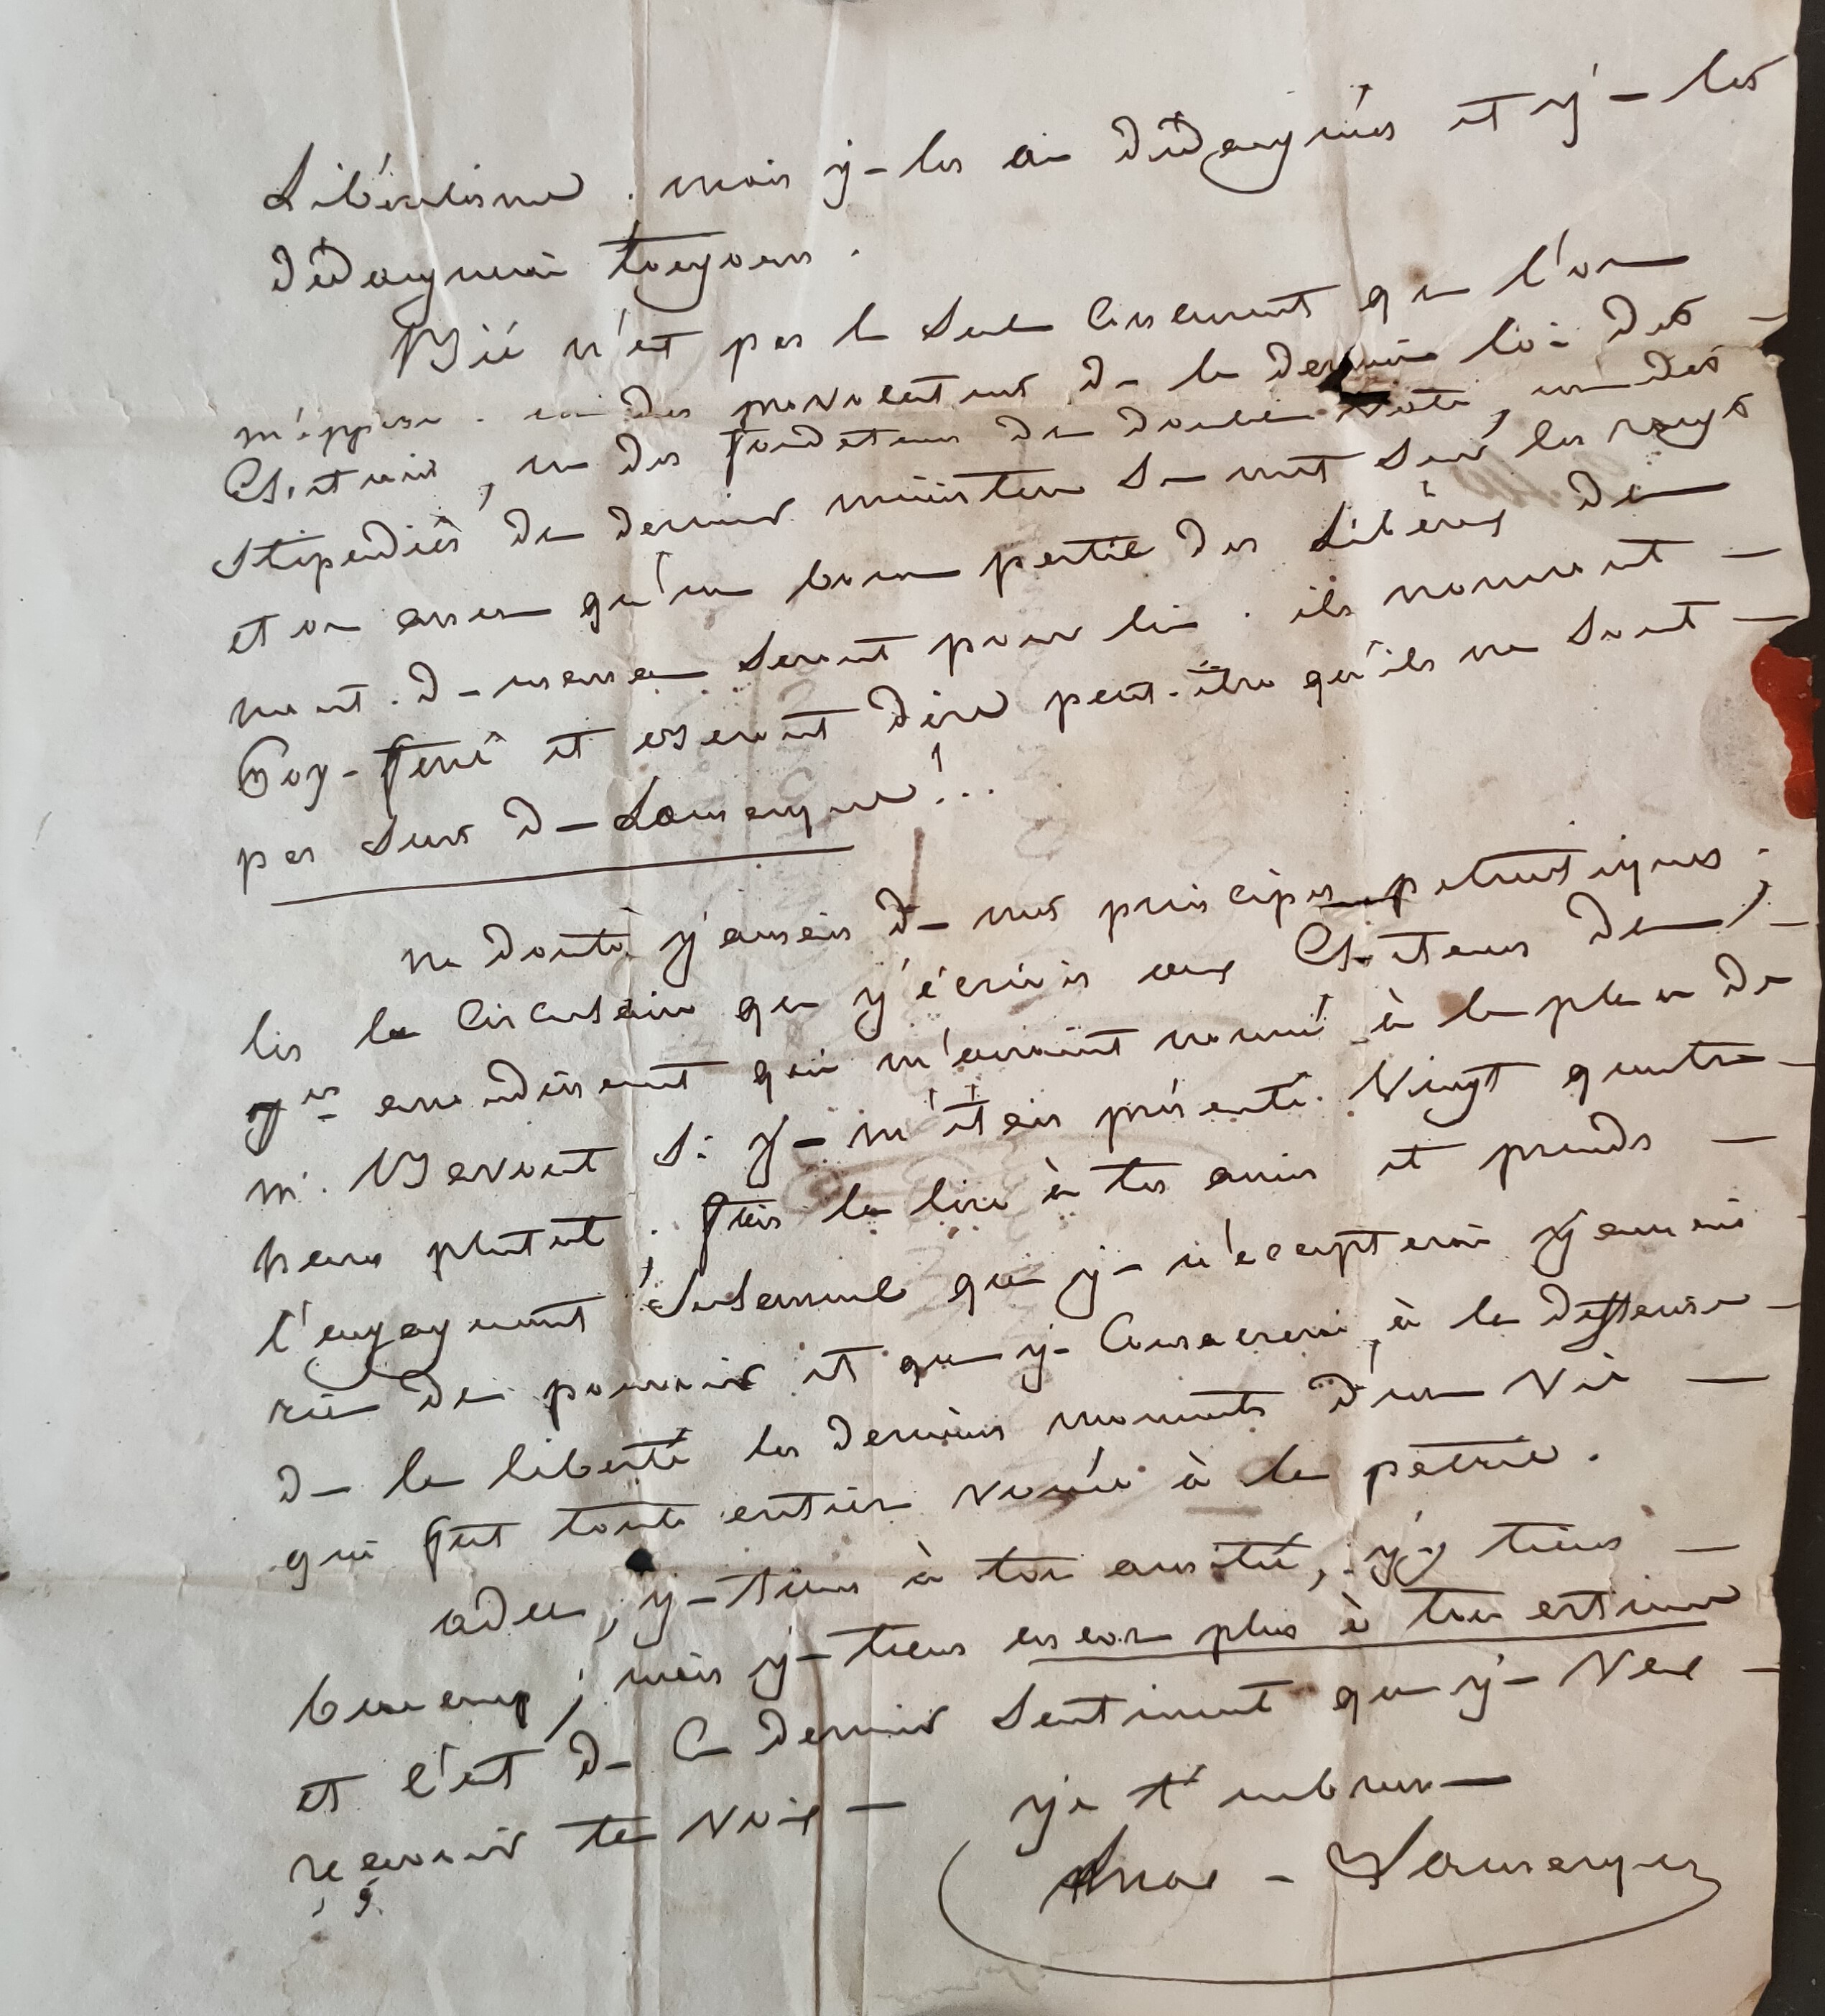 Libéralisme. mais je les ai dédaignés et je les
dédaignerai toujours.
n'est pas le seul concurrent que l'on
m'oppose. un des provocateurs de la dernière loi des
un des fondateurs du double vote, un des
stipendiés du dernier ministere se met sur les rangs
et on assure qu'une bonne partie des Libéraux du
seront pour lui. ils nommeront
Puy-ferré et oseront dire peut-être qu'ils ne sont
pas surs de Lamarque!..
ne doute jamais de mes principes patriotiques.
lis la Circulaire que j'écrivis aux Electeurs du
arrondissement qui m'auraient nommé à la place de
mr. Bavoux si je m'étais présenté Vingt quatre
heures plutôt; fais la lire à tes amis et prends
l'engagement Solennel que je n'accepterai jamais
rien du pouvoir et que je Consacrerai à la deffense
de la liberté les derniers moments d'une vie
qui fut toute entière vouée à la patrie.
adieu, je tiens à ton amitié, j'y tiens
beaucoup; mais je tiens encore plus à ton estime
et c'est de ce dernier sentiment que je veux
recevoir ta voix — je t'embrasse
Max - Lamarque